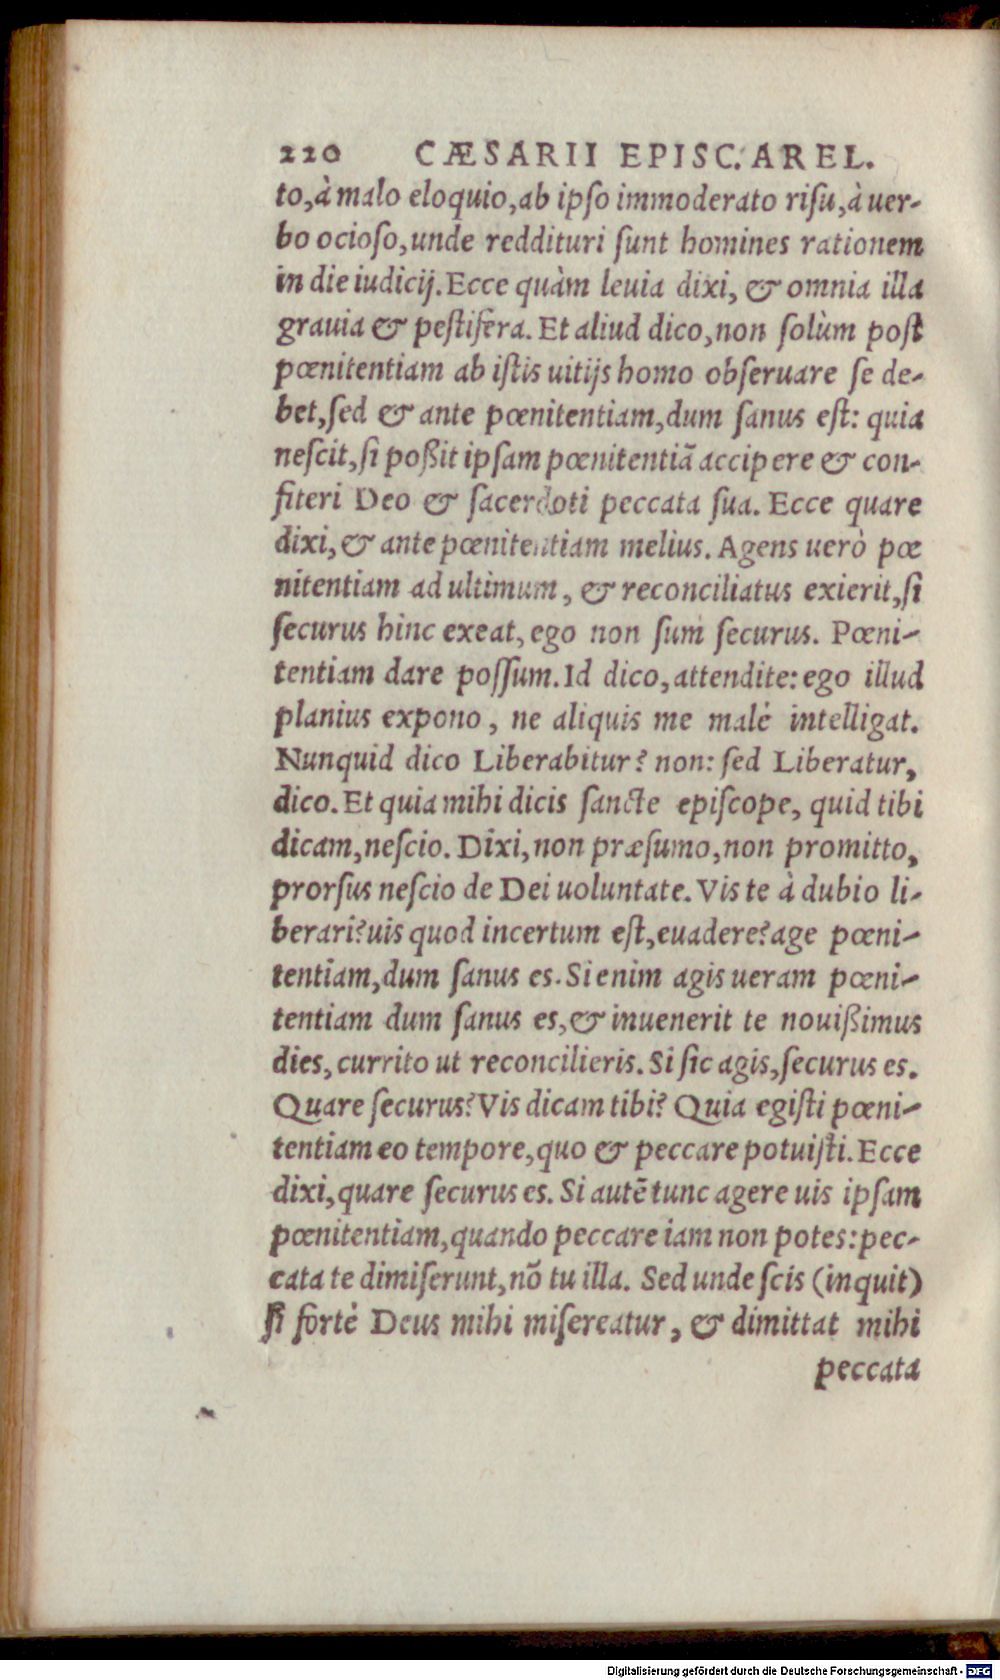 220 CÆSARII EPISC. AREL.
to, à malo eloquio, ab ipſo immoderato riſu, à uer-
bo ocioſo, unde reddituri ſunt homines rationem
in die iudicij. Ecce quàm leuia dixi, & omnia illa
grauia & peſtifera. Et aliud dico, non ſolùm poſt
pœnitentiam ab iſtis uitijs homo obſeruare ſe de-
bet, ſed & ante pœnitentiam, dum ſanus eſt: quia
neſcit, ſi poßit ipſam pœnitentiã accipere & con-
fiteri Deo & ſacerdoti peccata ſua. Ecce quare
dixi, & ante pœnitentiam melius. Agens uerò pœ
nitentiam ad ultimum, & reconciliatus exierit, ſi
ſecurus hinc exeat, ego non ſum ſecurus. Pœni-
tentiam dare poſſum. Id dico, attendite: ego illud
planius expono, ne aliquis me malè intelligat.
Nunquid dico Liberabitur? non: ſed Liberatur,
dico. Et quia mihi dicis ſancte epiſcope, quid tibi
dicam, neſcio. Dixi, non præſumo, non promitto,
prorſus neſcio de Dei uoluntate. Vis te à dubio li-
berari? uis quod incertum eſt, euadere? age pœni-
tentiam, dum ſanus es. Si enim agis ueram pœni-
tentiam dum ſanus es, & inuenerit te nouißimus
dies, currito ut reconcilieris. Si ſic agis, ſecurus es.
Quare ſecurus? Vis dicam tibi? Quia egiſti pœni-
tentiam eo tempore, quo & peccare potuiſti. Ecce
dixi, quare ſecurus es. Si autẽ tunc agere uis ipſam
pœnitentiam, quando peccare iam non potes: pec-
cata te dimiſerunt, nõ tu illa. Sed unde ſcis (inquit)
ſi fortè Deus mihi miſereatur, & dimittat mihi
peccata
Digitalisierung gefördert durch die Deutsche Forschungsgemeinschaft - DFG